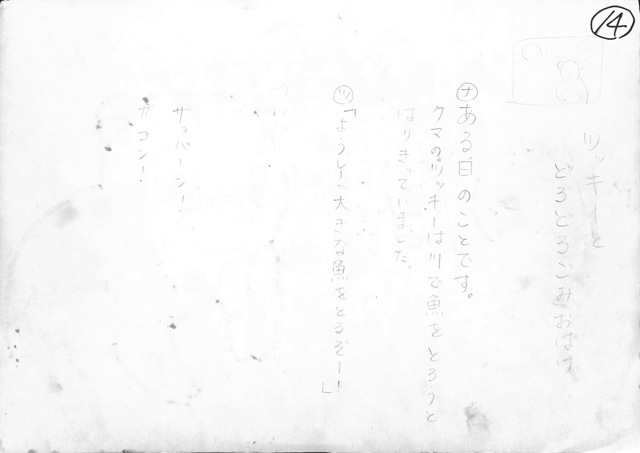 14
ツッキーと
どろどろごみおばけ
ナ ある日のことです。
クマのツッキーは川で魚をとろうと
はりきっていました。
ツ「ようし!大きな魚をとるぞー!」
サッパーン!
ガコン!